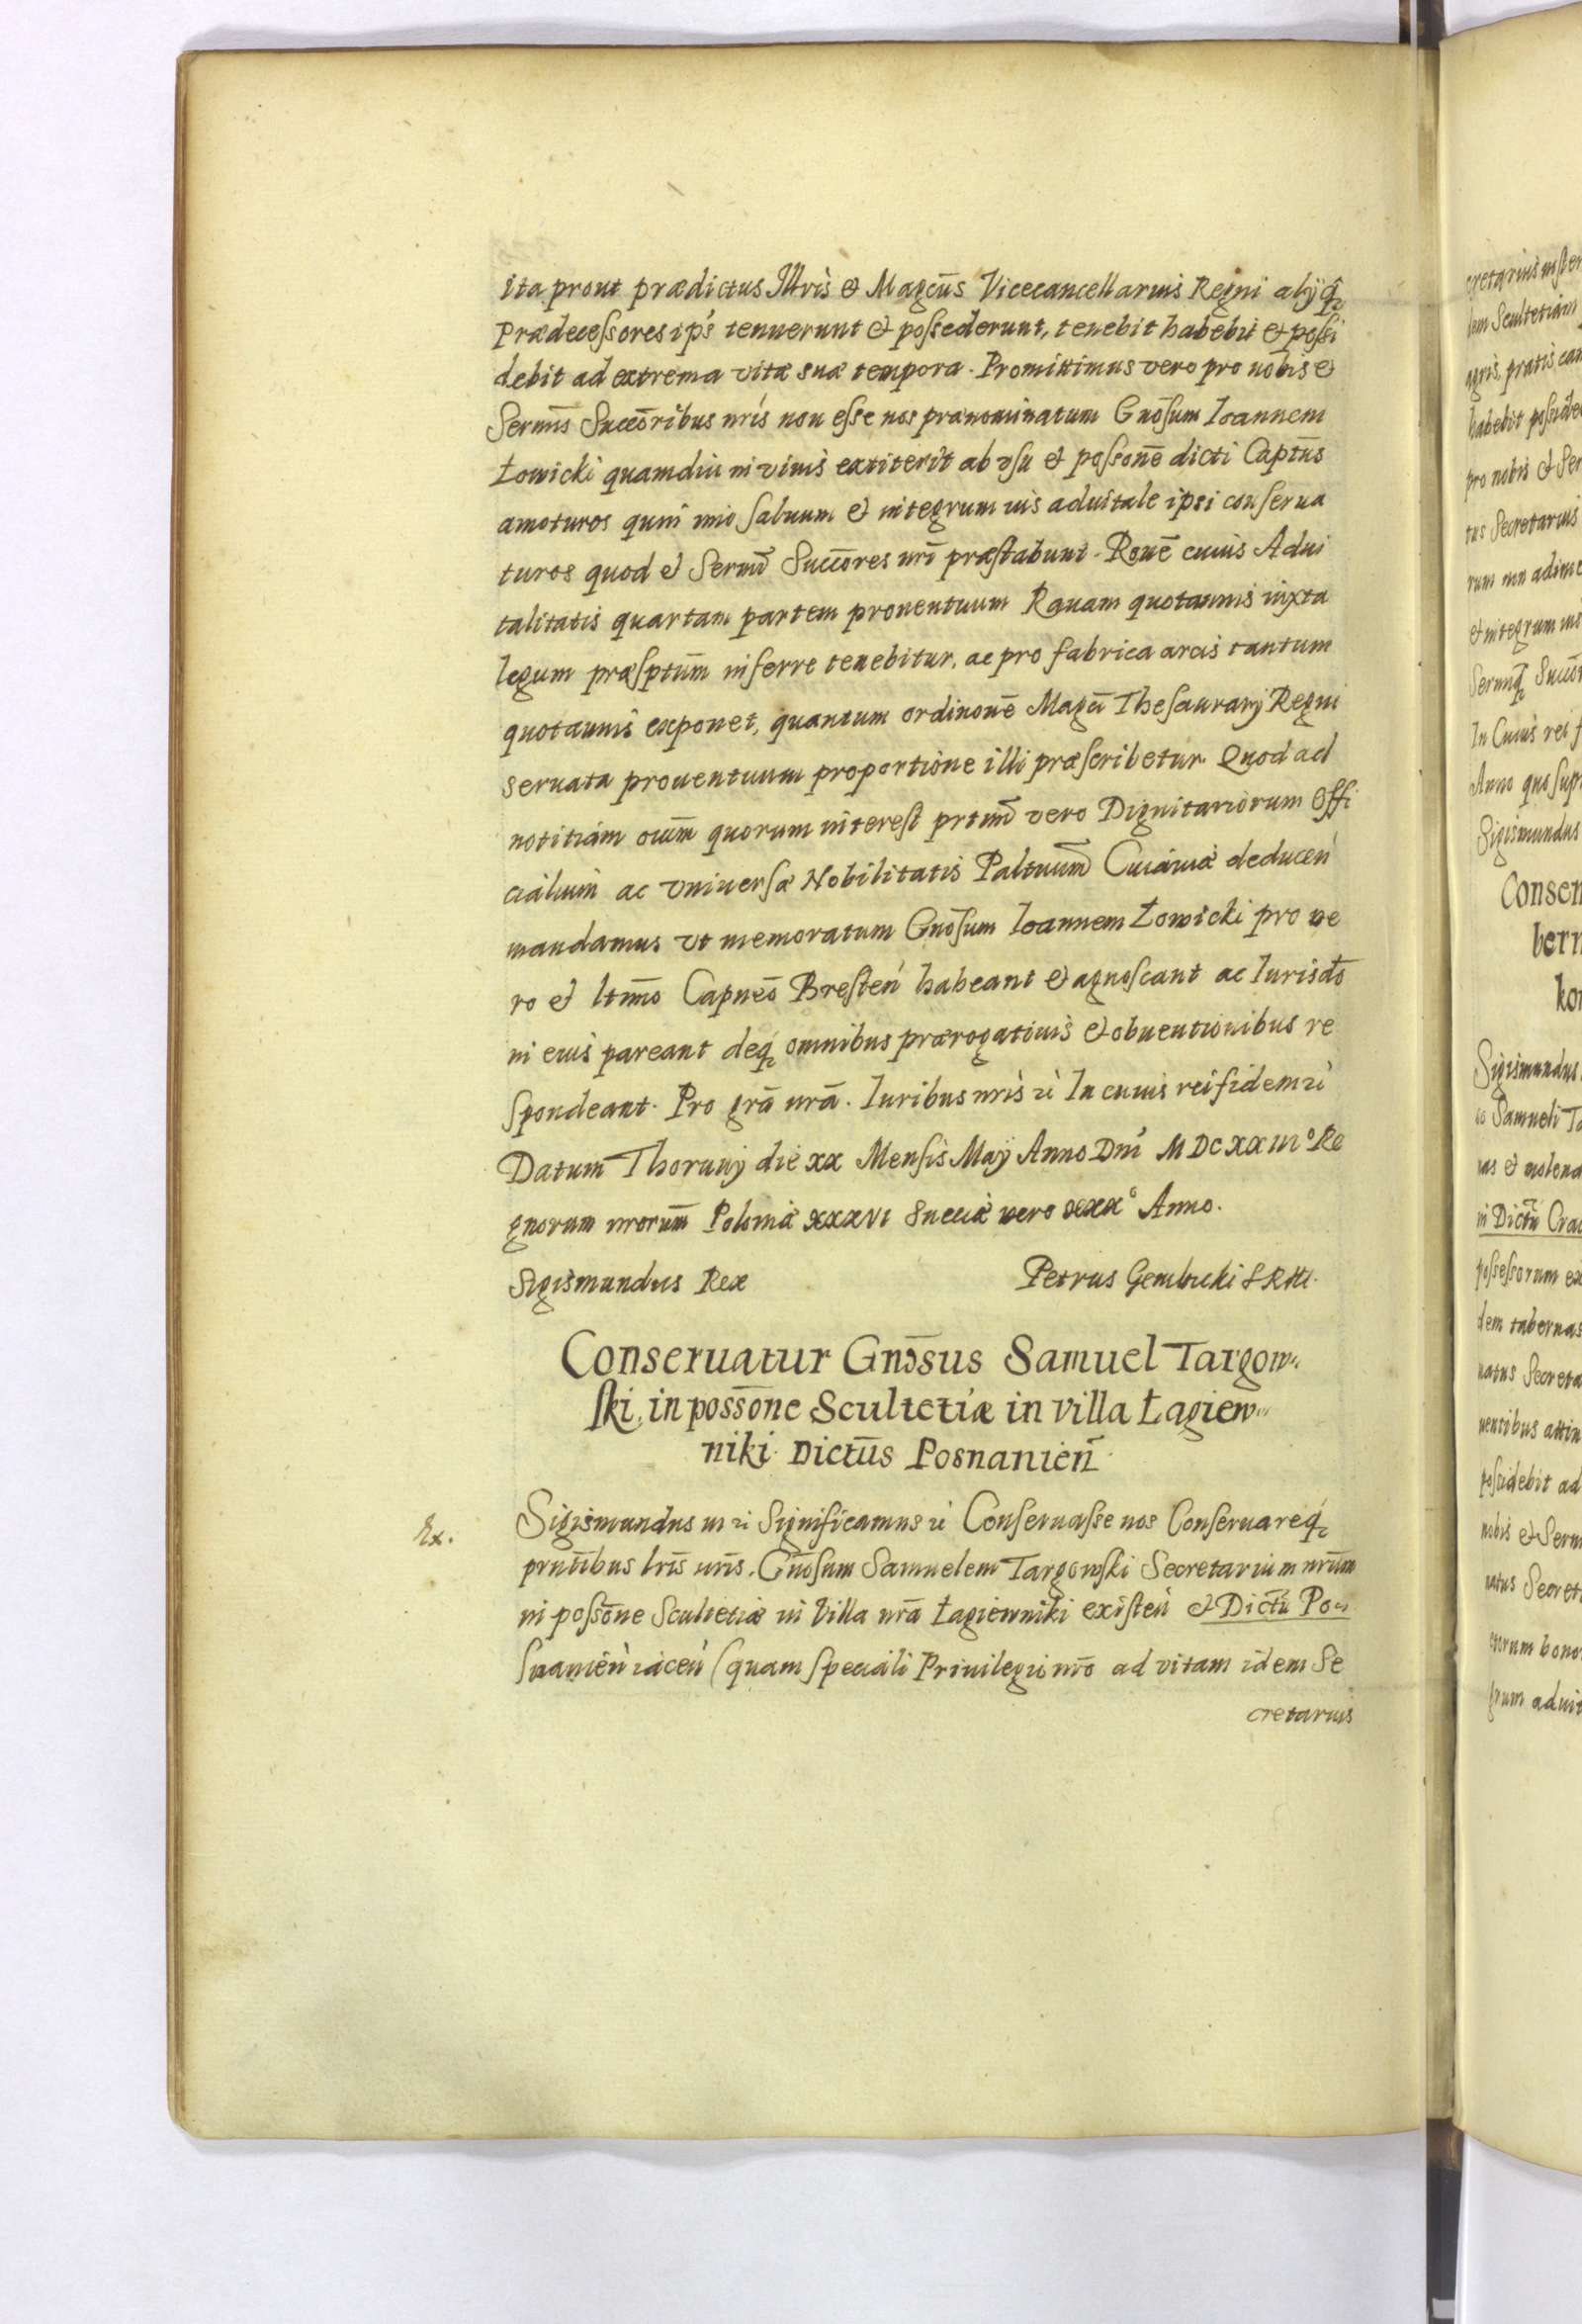 Ita prout prædictus Illris et Magcūs Vicecancellarius Regni alijq̃
Prædecessores ips tenuerunt et possederunt, tenebit habebit et possi
debit ad extrema vitæ suæ tempora. Promittimus vero pro nobis et
Sermis Succoribus nris non esse nos prænominatum Gnosum Ioannem
Łowicki quamdiu in viuis extiterit ab vsu et possonē dicti Captūs
amoturos quin imo saluum et integrum ius aduitale ipsi conserua
turos quod et Sermi Succores nri præstabunt. Ronē cuius Adui
talitatis quartam partem prouentuum Rauam quotannis iuxta
legum præsptūm inferre tenebitur, ac pro fabrica arcis tantum
quotannis exponet, quantum ordinonē Magci Thesaurarij Regni
seruata prouentuum proportione illi præscribetur. Quod ad
notitiam oium quorum interest prtim vero Dignitariorum Offi
cialium ac vniuersæ Nobilitatis Paltuum Cuiauiæ deducen
mandamus vt memoratum Gnosum Ioannem Łowicki pro ve
ro et ltimo Capneo Bresten habeant et agnoscant ac Iurisdo
ni eius pareant deq̃ omnibus prærogatiuis et obuentionibus re
spondeant. Pro grā nrā. Iuribus nris zc̀ In cuius rei fidem zc̀
Datum Thorunij die xx Mensis Maij Anno Dni MDCXXIIIº Re
gnorum nrorum Poloniæ xxxvi Sueciæ vero xxxº Anno.
Sigismundus Rex Petrus Gembicki SRM.
Conseruatur Gnosus Samuel Targow-
ski, in possōne Scultetiæ in villa Łagiew-
niki Dictūs Posnanien
Ex. Sigismundus III zc̀ Significamus zc̀ Conseruasse nos Conseruareq̃
prntibus lris nris. Gnosum Samuelem Targowski Secretarium nrum
in possōne Scultetiæ in Villa nrā Łagiewniki existen et Dictū Po-
snanien iacen (quam speciali Priuilegio nro ad vitam idem Se
cretarius